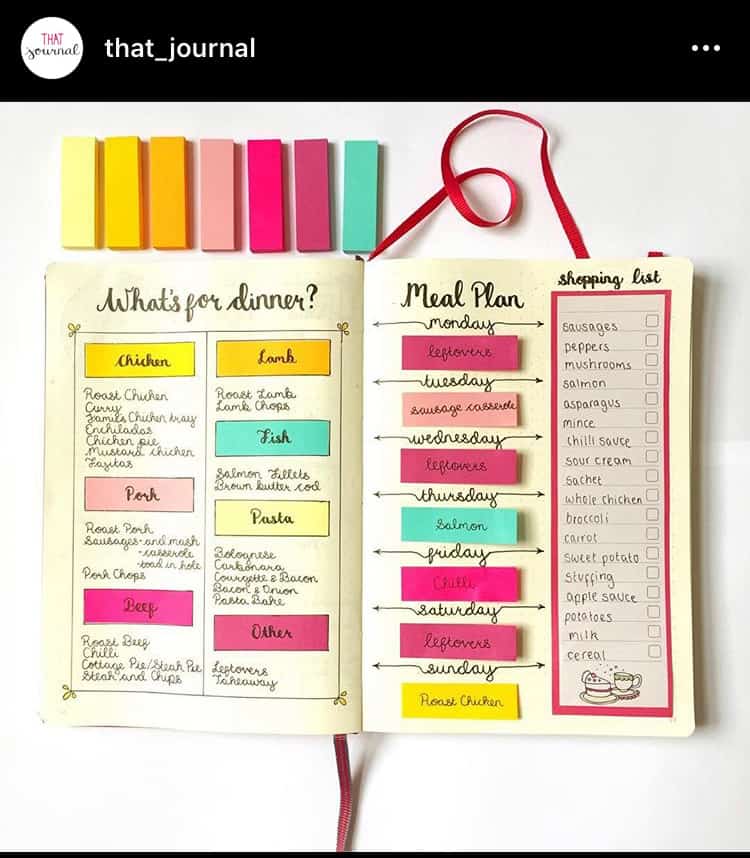 THAT
journal
that_journal
What's for dinner?
Chicken
Roast Chicken
Curry
James Chicken tray
Enchiladas
Chicken pie
Mustard chicken
Fajitas
Pork
Roast Pork
Sausages - and mash
- casserole
- toad in hole
Pork Chops
Beef
Roast Beef
Chilli
Cottage Pie/Steak Pie
Steak and Chips
Lamb
Roast Lamb
Lamb Chops
Fish
Salmon Fillets
Brown butter cod
Pasta
Bolognese
Carbonara
Courgette & Bacon
Bacon & Onion
Pasta Bake
Other
Leftovers
Takeaway
Meal Plan
monday
leftovers
tuesday
sausage casserole
wednesday
leftovers
thursday
Salmon
friday
Chilli
saturday
leftovers
sunday
Roast Chicken
shopping list
sausages
peppers
mushrooms
salmon
asparagus
mince
chilli sauce
sour cream
sachet
whole chicken
broccoli
carrot
sweet potato
stuffing
apple sauce
potatoes
milk
cereal